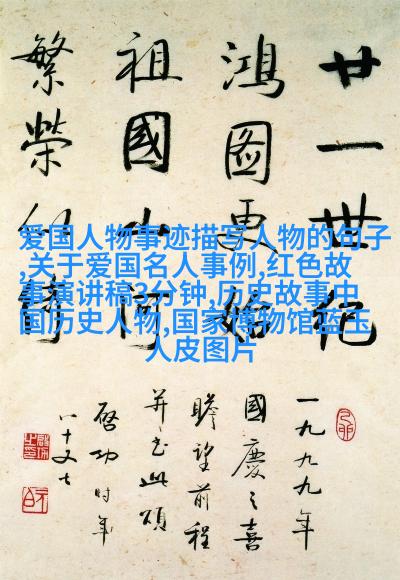 廿一世紀
鴻圖更始
祖國山河
繁榮
一九九九年
國慶之喜
瞻望前程
并书此頌
啓功時年
八十又七
爱国人物事迹描写人物的句子
,关于爱国名人事例,红色故
事演讲稿3分钟,历史故事中
国历史人物,国家博物馆蓝玉
人皮图片